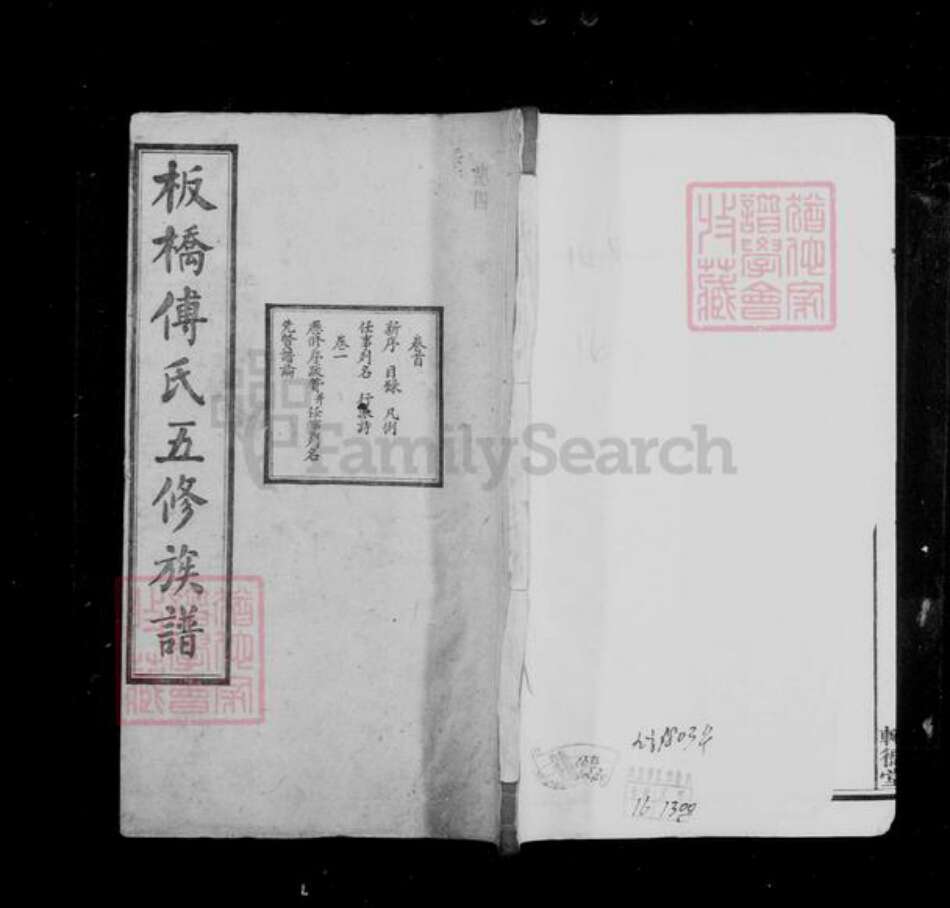 板橋傅氏五修族譜
卷首
新序 目錄 凡例
任事列名 行派詩
卷一
歷修序跋贊并任事列名
先賢譜論
猶他家
譜學會
收藏
猶他家
譜學會
收藏
FamilySearch
16 1399